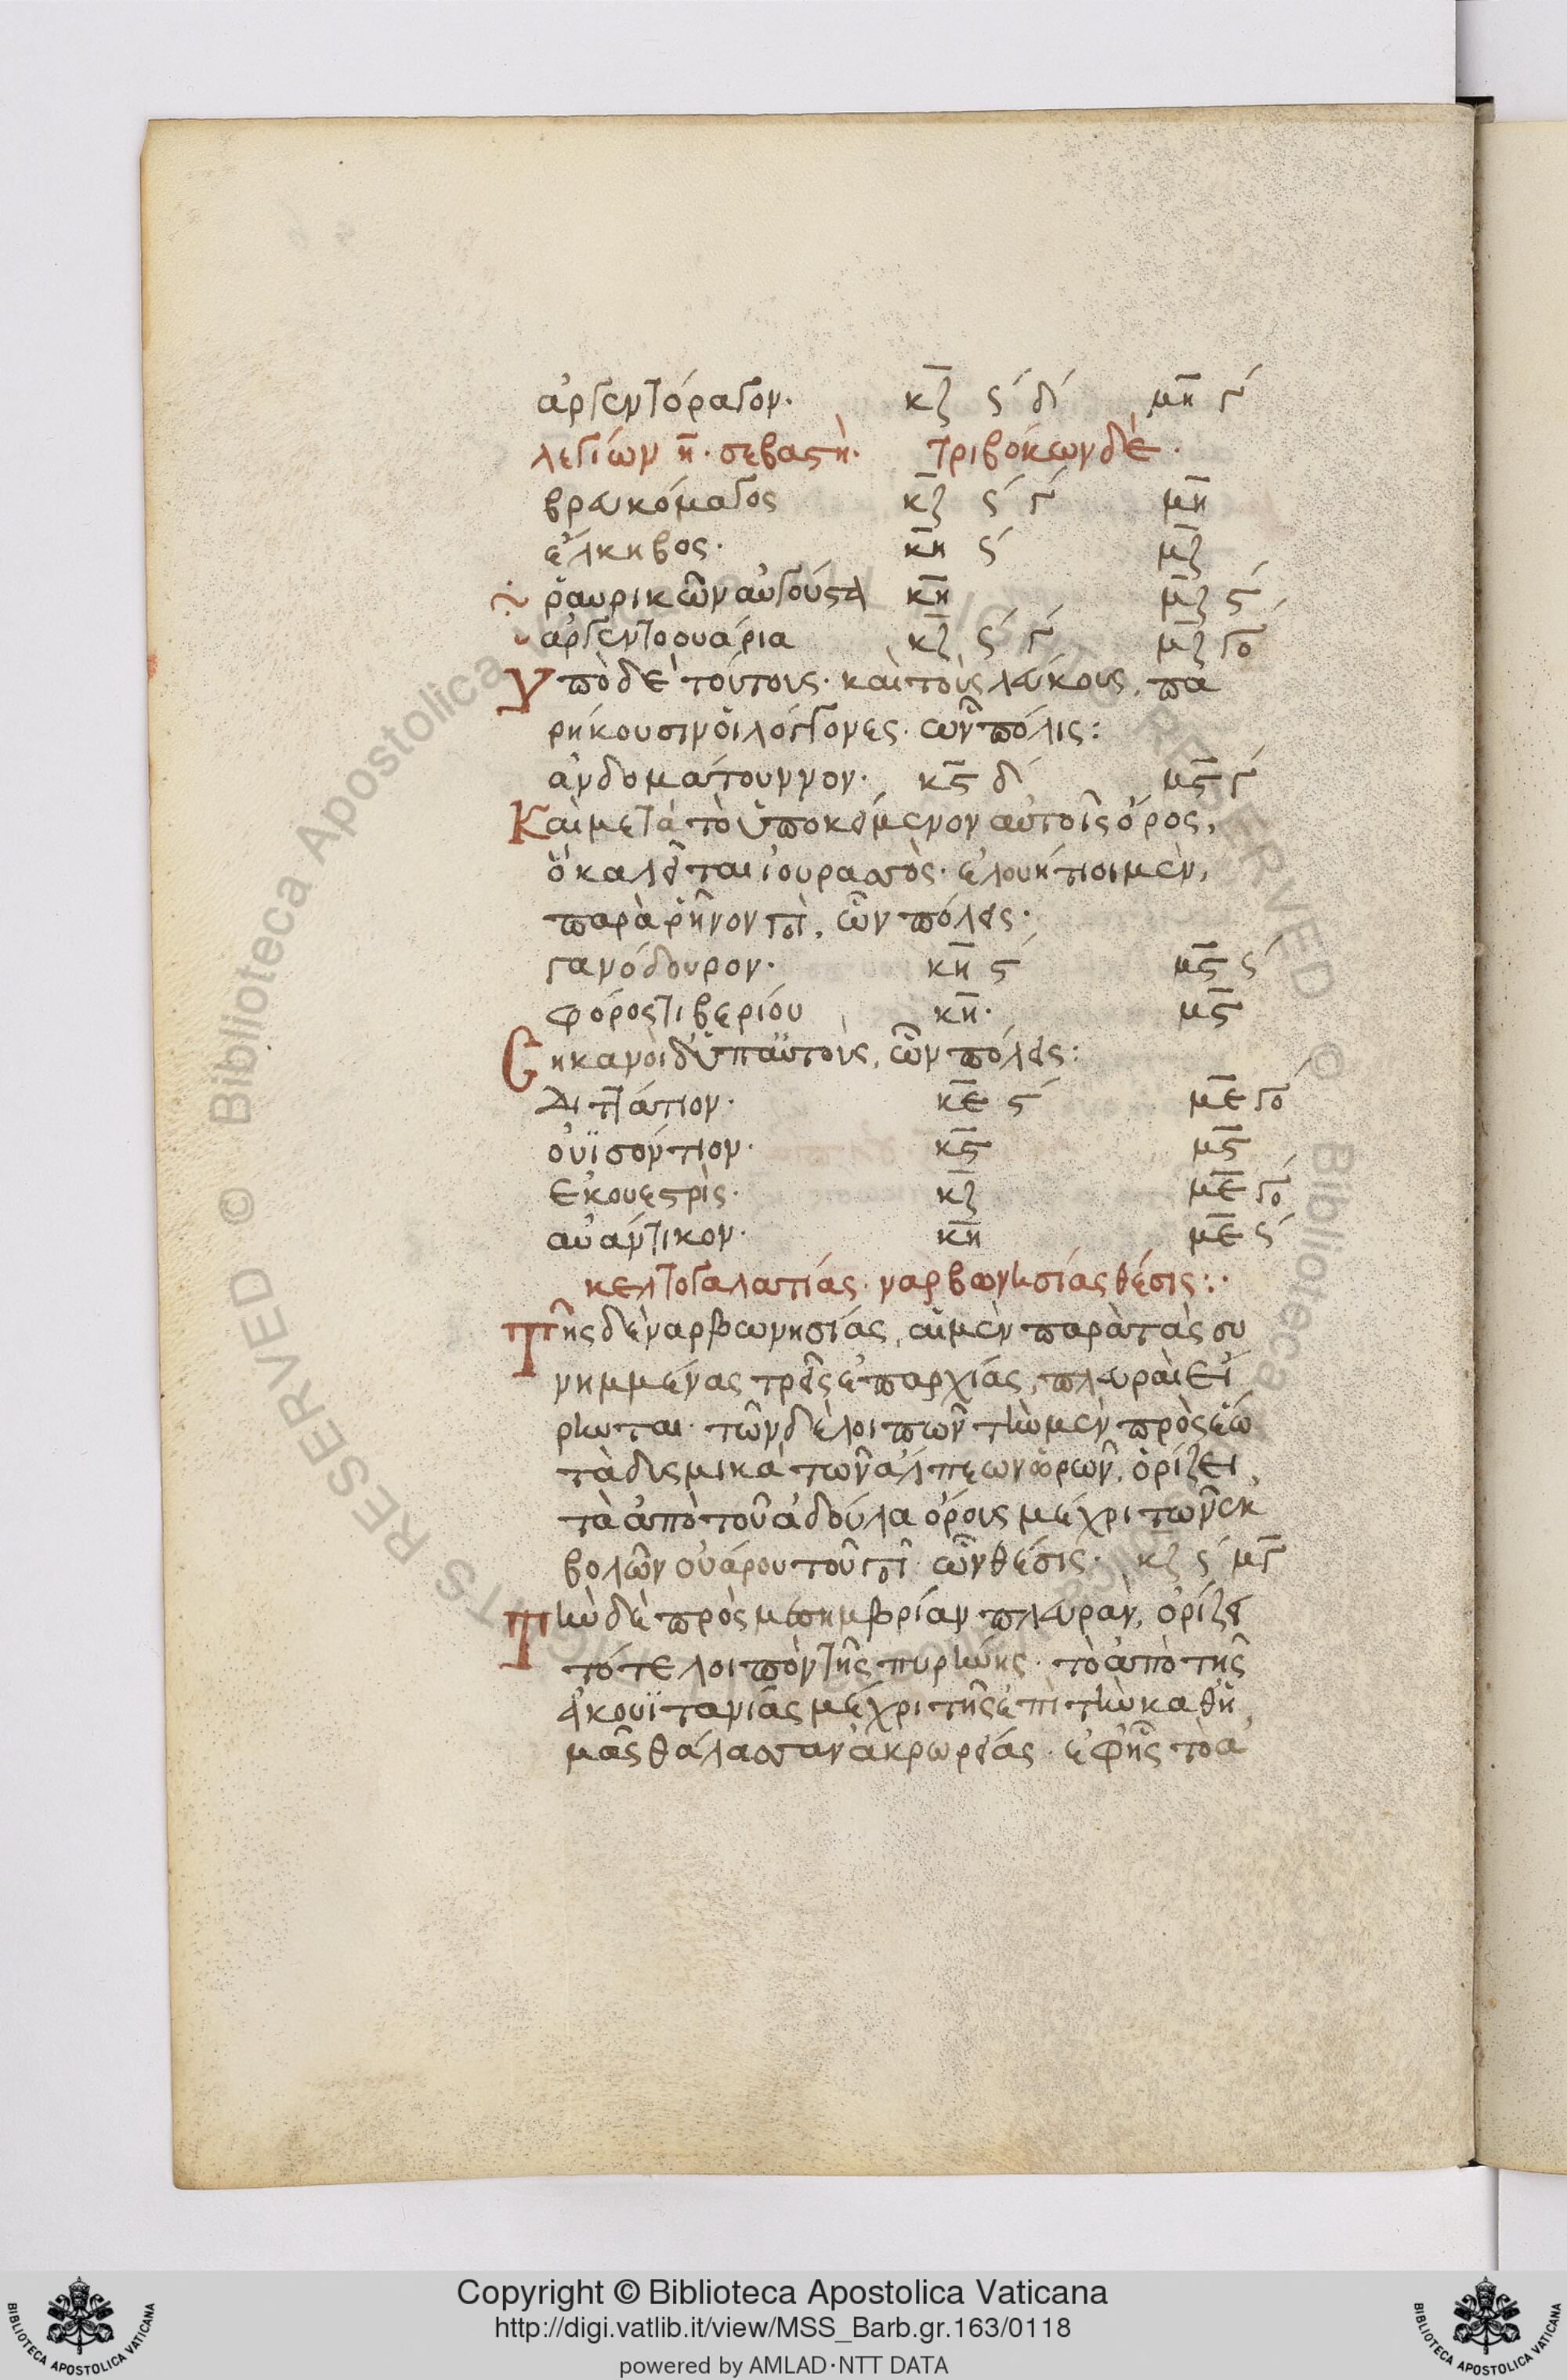 ἀργεντόρατον· κζ ς΄ δ΄ μη γ΄
λεγίων η· σεβαστή· τριβόκων δέ·
βρευκόματος κζ ς΄ γ΄ μη
ἔλκηβος· κη ς΄ μζ
ῥαυρικῶν αὐγούστα κη μζ ς΄
ἀργεντοουάρια κζ ς΄ γ΄ μζ γο΄
Ὑπὸ δὲ τούτους· καὶ τοὺς λεύκους, πα
ρήκουσιν οἱ λόγγονες· ὧν πόλις:
ἀνδομάτουννον· κς δ΄ μς γ΄
Καὶ μετὰ τὸ ὑποκείμενον αὐτοῖς ὄρος,
ὃ καλεῖται ἰουρασσὸς· ἐλουήτιοι μὲν,
παρὰ ῥῆνον ππ, ὧν πόλεις·
γανόδουρον· κη ς΄ μς ς΄
φόρος τιβερίου κη· μς
Σηκανοὶ δ' ὑπ' αὐτοὺς, ὧν πόλεις:
διττάτιον· κε ς΄ με γο΄
οὐϊσόντιον· κς μς
ἐκουεστρὶς· κζ με γο΄
αὐάντικον· κη με ς΄
κελτογαλατίας· ναρβωνησίας θέσις:·
Τῆς δὲ ναρβωνησίας, αἱ μὲν παρὰ τὰς συ
νημμένας τρεῖς ἐπαρχίας, πλευραὶ εἴ
ρηνται· τῶν δὲ λοιπῶν τὴν μὲν πρὸς ἕω
τὰ δυσμικὰ τῶν ἄλπεων ὀρῶν, ὁρίζει,
τὰ ἀπὸ τοῦ ἀδούλα ὄρους μέχρι τῶν ἐκ
βολῶν οὐάρου τοῦ ππ ὧν θέσις· κζ ς΄ μγ
Τὴν δὲ πρὸς μεσημβρίαν πλευρὰν, ὁρίζει
τό τε λοιπὸν τῆς πυρήνης· τὸ ἀπὸ τῆς
ἀκουϊτανίας μέχρι τῆς ἐπὶ τὴν καθ' ἡ
μᾶς θάλασσαν ἀκρωρείας· ἐφ' ἧς τὸ ἀ
Copyright © Biblioteca Apostolica Vaticana
http://digi.vatlib.it/view/MSS_Barb.gr.163/0118
powered by AMLAD·NTT DATA